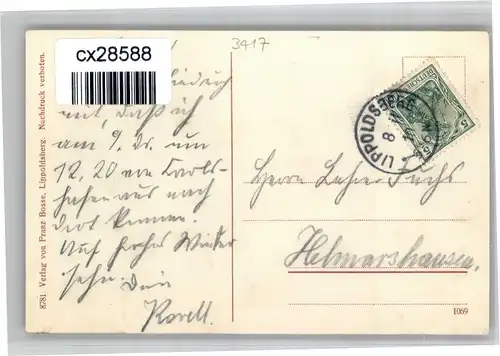 cx28588
3417
mit, daß ich
am 9. ds. um
12,20 von Carls-
hafen aus nach
dort komme.
Auf frohes Wieder
sehn. Dein
8781. Verlag von Franz Bosse, Lippoldsberg. Nachdruck verboten.
LIPPOLDSBERG
8
DEUTSCHES
5
Herrn Lehrer Fuchs
Helmarshausen.
1069